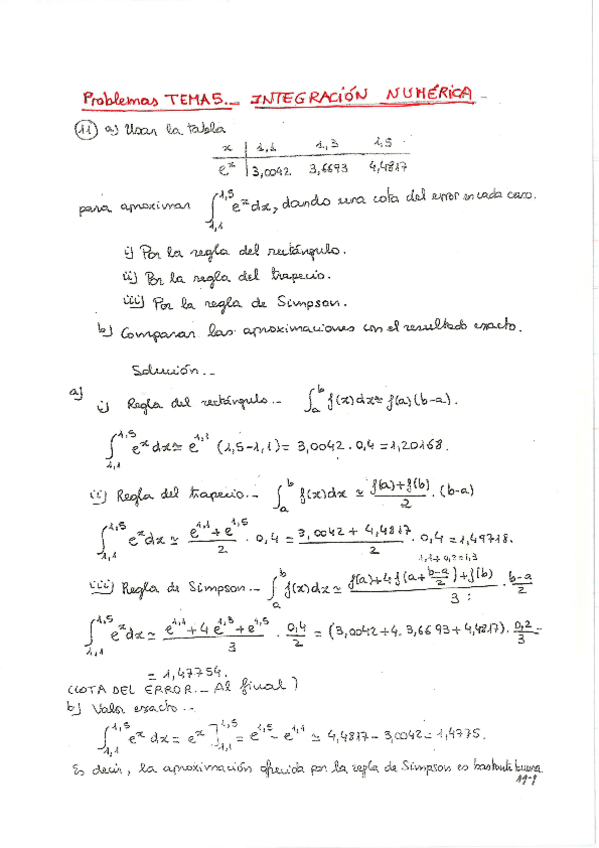 Problemas TEMA 5.- INTEGRACIÓN NUMÉRICA -
11 a) Usar la tabla
x | 1,1 1,3 1,5
e^x | 3,0042 3,6693 4,4817
para aproximar ∫_{1,1}^{1,5} e^x dx, dando una cota del error en cada caso.
i) Por la regla del rectángulo.
ii) Por la regla del trapecio.
iii) Por la regla de Simpson.
b) Comparar las aproximaciones con el resultado exacto.
Solución.-
a)
i) Regla del rectángulo.- ∫_a^b f(x)dx ≃ f(a)(b-a).
∫_{1,1}^{1,5} e^x dx ≃ e^{1,1} (1,5-1,1) = 3,0042 · 0,4 = 1,20168.
ii) Regla del trapecio.- ∫_a^b f(x)dx ≃ (f(a)+f(b))/2 · (b-a)
∫_{1,1}^{1,5} e^x dx ≃ (e^{1,1}+e^{1,5})/2 · 0,4 = (3,0042+4,4817)/2 · 0,4 = 1,49718.
1,1+0,2=1,3
iii) Regla de Simpson.- ∫_a^b f(x)dx ≃ (f(a)+4f(a+(b-a)/2)+f(b))/3 · (b-a)/2
∫_{1,1}^{1,5} e^x dx ≃ (e^{1,1}+4e^{1,3}+e^{1,5})/3 · 0,4/2 = (3,0042+4·3,6693+4,4817) · 0,2/3 =
= 1,47754.
(COTA DEL ERROR.- Al final)
b) Valor exacto.-
∫_{1,1}^{1,5} e^x dx = e^x ]_{1,1}^{1,5} = e^{1,5} - e^{1,1} ≃ 4,4817 - 3,0042 = 1,4775.
Es decir, la aproximación ofrecida por la regla de Simpson es bastante buena.